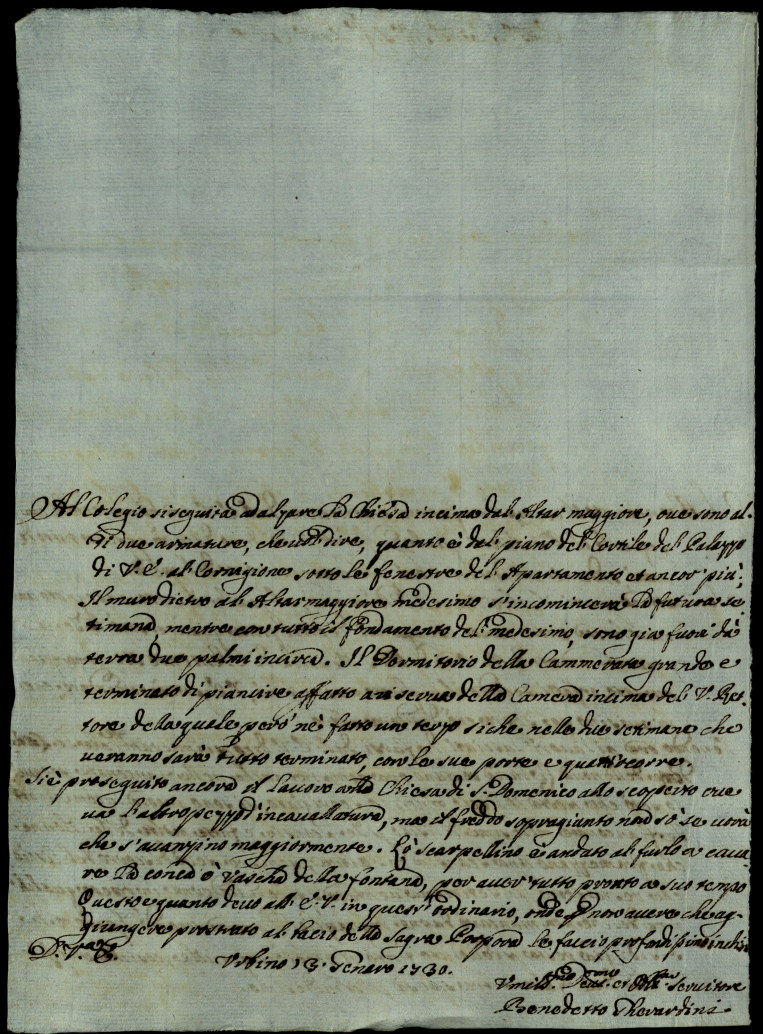 Al Colegio si seguita ad alzare la Chiesa in cima dal Altar maggiore, oue sono al-
ti due armature, che uol dire, quanto è dal piano del Cortile del Palazzo
di V. E. al Cornigione sotto le fenestre del Apartamento et ancor più;
Il muro dietro al Altar maggiore medesimo s'incomincerà la futura se-
timana, mentre con tutto il fondamento del medesimo, sono gia fuori dà
terra due palmi incirca. Il Dormitorio della Cammerata grande e
terminato di piancire affatto a riserua della Camera in cima del V. Ret-
tore della quale però nè fatto un terzo siche nelle due setimane che
ueranno sarà tutto terminato, con le sue porte e quanto corre.
Si è proseguito ancora il lauoro alla Chiesa di S. Domenico allo scoperto oue
ua l'altro pezzo d'incauallatura, ma il freddo sopragianto non sò se uorà
che s'auanzino maggiormente. Li scarpellino è andato al furlo a caua-
re la conca ò uasca della fontana, per auer tutto pronto a suo tempo
Questo è quanto deuo all' E. V. in quest' ordinario, onde non auere che ag-
giungere prostrato al bacio della Sagra Porpora le faccio profondissimo inchino
D. V. Em.
Vrbino 13 Genaro 1730.
Vmil.mo Deuot.mo et Obl.mo Seruitore
Benedetto Gherardini